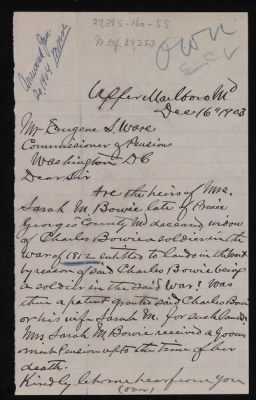 29,395-160-55
N of. 29253
Own
Answered Jan
20, 1904
Upper Marlboro Md
Dec 16th 1903
Mr Eugene S. Ware
Commissioner of Pensions
Washington D C
Dear Sir
Are the heirs of Mrs.
Sarah M. Bowie late of Prince
Georges County Md deceased, widow
of Charles Bowie a soldier in the
War of 1812 entitled to lands in the West
by reason of said Charles Bowie being
a soldier in the said War? Was
there a patent granted said Charles Bowie
or his wife Sarah M. for such lands?
Mrs Sarah M. Bowie received a Govern
ment Pension up to the time of her
death.
Kindly let me hear from you
(over)